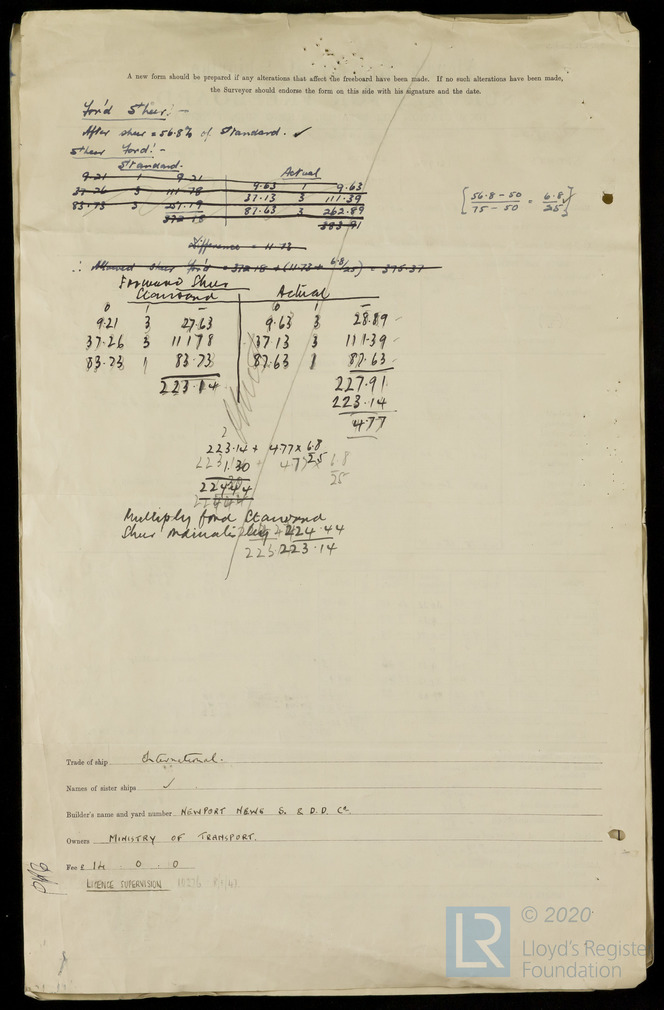 A new form should be prepared if any alterations that affect the freeboard have been made. If no such alterations have been made,
the Surveyor should endorse the form on this side with his signature and the date.
For'd Sheer:-
After sheer = 56.8% of Standard. ✓
Sheer Ford:-
Standard. Actual
9.21 1 9.21 9.63 1 9.63
37.26 3 111.78 37.13 3 111.39
83.73 3 251.19 87.63 3 262.89
372.18 383.91
[56.8 – 50 / 75 – 50 = 6.8 / 25]
Difference = 11.73
∴ Allowed sheer for'd = 372.18 + (11.73 × 6.8/25) = 375.37
Forward Sheer
Standard Actual
0 1 – 0 1 –
9.21 3 27.63 9.63 3 28.89
37.26 3 111.78 37.13 3 111.39
83.73 1 83.73 87.63 1 87.63
223.14 227.91
223.14
4.77
223.14 + 4.77 × 6.8
25
1.30
224.44
Multiply ford Standard
Sheer ordinates by 224.44
223.14
Trade of ship International.
Names of sister ships ✓
Builder's name and yard number NEWPORT NEWS S. & D.D. Co.
Owners MINISTRY OF TRANSPORT.
Fee £ 14 . 0 . 0
LICENCE SUPERVISION
LR © 2020
Lloyd's Register
Foundation